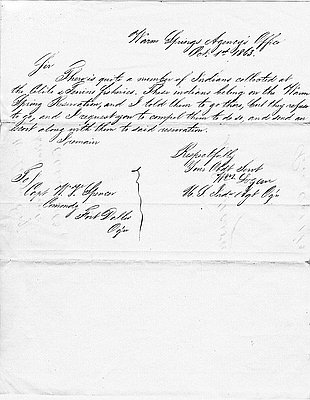 Warm Springs Agency's Office
Oct. 1st 1863.
Sir
There is quite a number of Indians collected at
the Celilo fisheries. These indians belong on the Warm
Spring Reservation, and I told them to go there, but they refuse
to go, and I request you to compel them to do so, and send an
escort along with them to said reservation.
I remain
Respectfully
Your Obdt Servt
Wm Logan
U. S. Ind. Agt Ogn
To
Capt W. V. Spencer
Comdg
Fort Dalles
Ogn